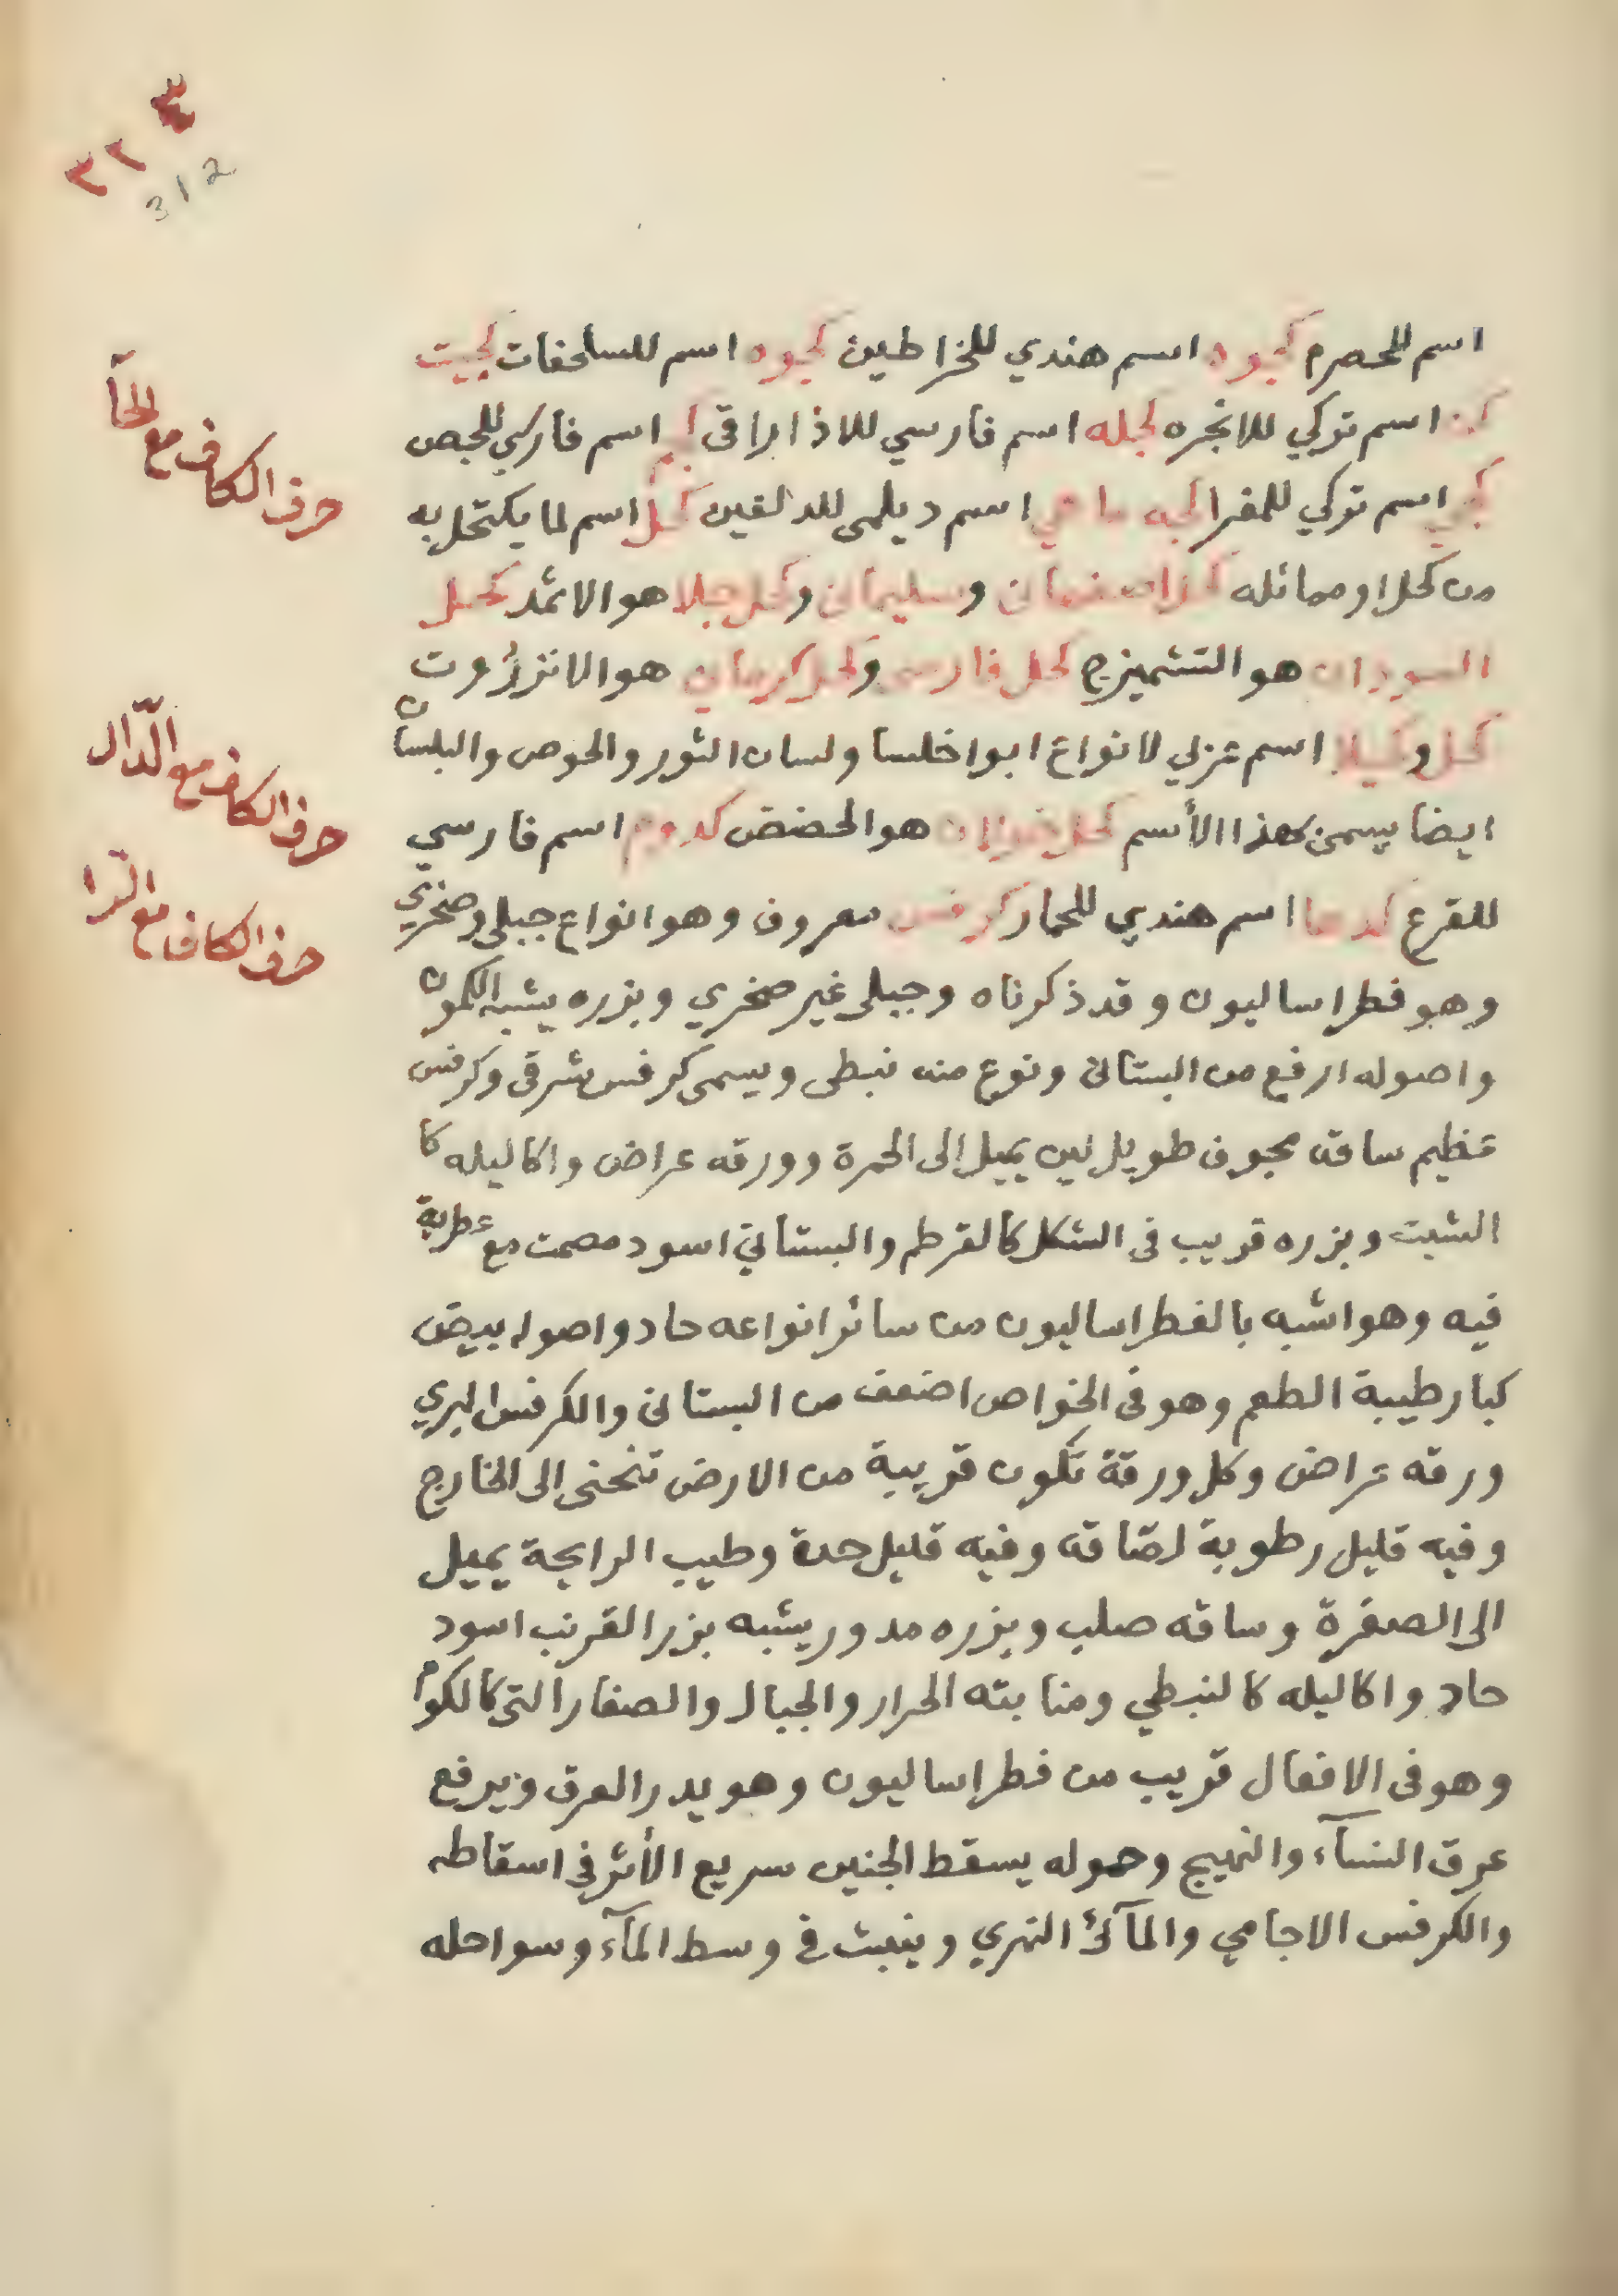 ٣
٣٢
312
اسم للحصرم كجوه اسم هندي للخراطين كجوه اسم للسلحفات كجيت
كن اسم تركي للانجره كجله اسم فارسي للاذاراقى كج اسم فارسي للجص
كجي اسم تركي للمغرا كجه ماهي اسم ديلمى للدلفين كحل اسم لما يكتحل به
من كحل او مماثله كحل اصفهانى وسليمانى وكحل جلا هو الاثمد كحل
السودان هو التشميزج كحل فارسى وكحل كرمانى هو الانزروت
كحل وكحيلا اسم عربي لانواع ابوا خلسا ولسان الثور والحوص والبلسان
ايضا يسمى بهذا الأسم كحل خولان هو الحضض كدوم اسم فارسي
للقرع كدها اسم هندي للحمار كرفس معروف وهو انواع جبلى وصخري
وهو فطراساليون وقد ذكرناه وجبلى غير صخري وبزره يشبه الكمون
واصوله ارفع من البستانى ونوع منه نبطى ويسمى كرفس مشرقى وكرفس
عظيم ساقه مجوف طويل لين يميل الى الحمرة وورقه عراض واكاليله كا
الشبت وبزره قريب فى الشكل كالقرطم والبستاني اسود مصمت مع عطرية
فيه وهو اشبه بالفطراساليون من سائر انواعه حاد واصوله بيض
كبار طيبة الطعم وهو فى الخواص اضعف من البستانى والكرفس البري
ورقه عراض وكل ورقة تكون قريبة من الارض تنحنى الى الخارج
وفيه قليل رطوبة لصاقه وفيه قليل حدة وطيب الرايحة يميل
الى الصفرة وساقه صلب وبزره مدور يشبه بزر القرنب اسود
حاد واكاليله كالنبطي ومنابته الحرار والجبال والصغار التى كالكوم
وهو فى الافعال قريب من فطراساليون وهو يدر العرق ويرفع
عرق النسآء والنهيج وحموله يسقط الجنين سريع الأثر فى اسقاطه
والكرفس الاجامي والمآئى النهري وينبت في وسط المآء وسواحله
حرف الكاف مع الحآ
حرف الكاف مع الدّال
حرف الكاف مع الرّا